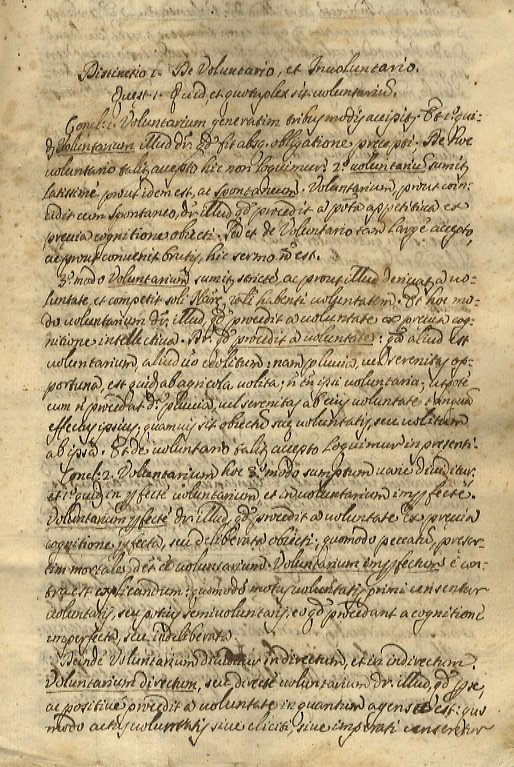 Disinctio 1. De Voluntario, et Involuntario.
Quest. 1. Quid, et quotuplex sit voluntariũ.
Concl. 1. Voluntarium generatim tribus modis accipit,
Voluntarium illud dr. qd fit absq. obligatione precepti; De hoc
voluntario taliter accepto hic non loquimur. 2º voluntariũ sumit,
latissime prout idem est, ac spontaneum. Voluntarium, prout coin-
cidit cum spontaneo, dr. illud qd procedit a pota appetitiva ex
previa cognitione obiecti. Sed et de Voluntario tam large accepto,
ac prout convenit brutis, hic sermo ñ est.
3º modo Voluntariũ sumit, stricte, ac prout illud derivat, a vo-
luntate, et competit soli habenti voluntatem. Et hoc mo-
do voluntarium dr. illud, qd procedit a voluntate ex previa cog-
nitione intellectiva. Dr. qd procedit a voluntate: qa aliud est
voluntarium, aliud vo volitum: nam pluvia, vel serenitas op-
portuna, est quid ab agricola volita; ñ tñ ipsi voluntaria; utpote
cum ñ procedat dr. pluvia, vel serenitas ab eius voluntate tanquã
effectus ipsius, quamvis sit obiectũ sue voluntatis, seu volitum
ab ipsa. Et de voluntario taliter accepto loquimur in presenti.
Concl. 2. Voluntarium hoc 3º modo sumptum varie dividitur.
et 1º quidẽ in pfecte voluntarium et in voluntarium impfecte.
Voluntarium pfecte dr. illud, qd procedit a voluntate ex previa
cognitione pfecta, seu deliberata obiecti; quomodo peccata, preser-
tim mortalia, dr. eẽ voluntaria. Voluntarium impfectum e con-
tra est explicandum: quomodo motus voluntatis primi censentur
voluntarii, seu potius semivoluntarii, eo qd procedant a cognitione
imperfecta, seu indeliberata.
Deinde Voluntarium dividitur in directum, et in indirectum.
Voluntarium directum, seu directe voluntarium dr. illud, qd p se,
ac positive procedit a voluntate in quantum agens est: quo
modo actus voluntatis sive eliciti, sive imperati censentur